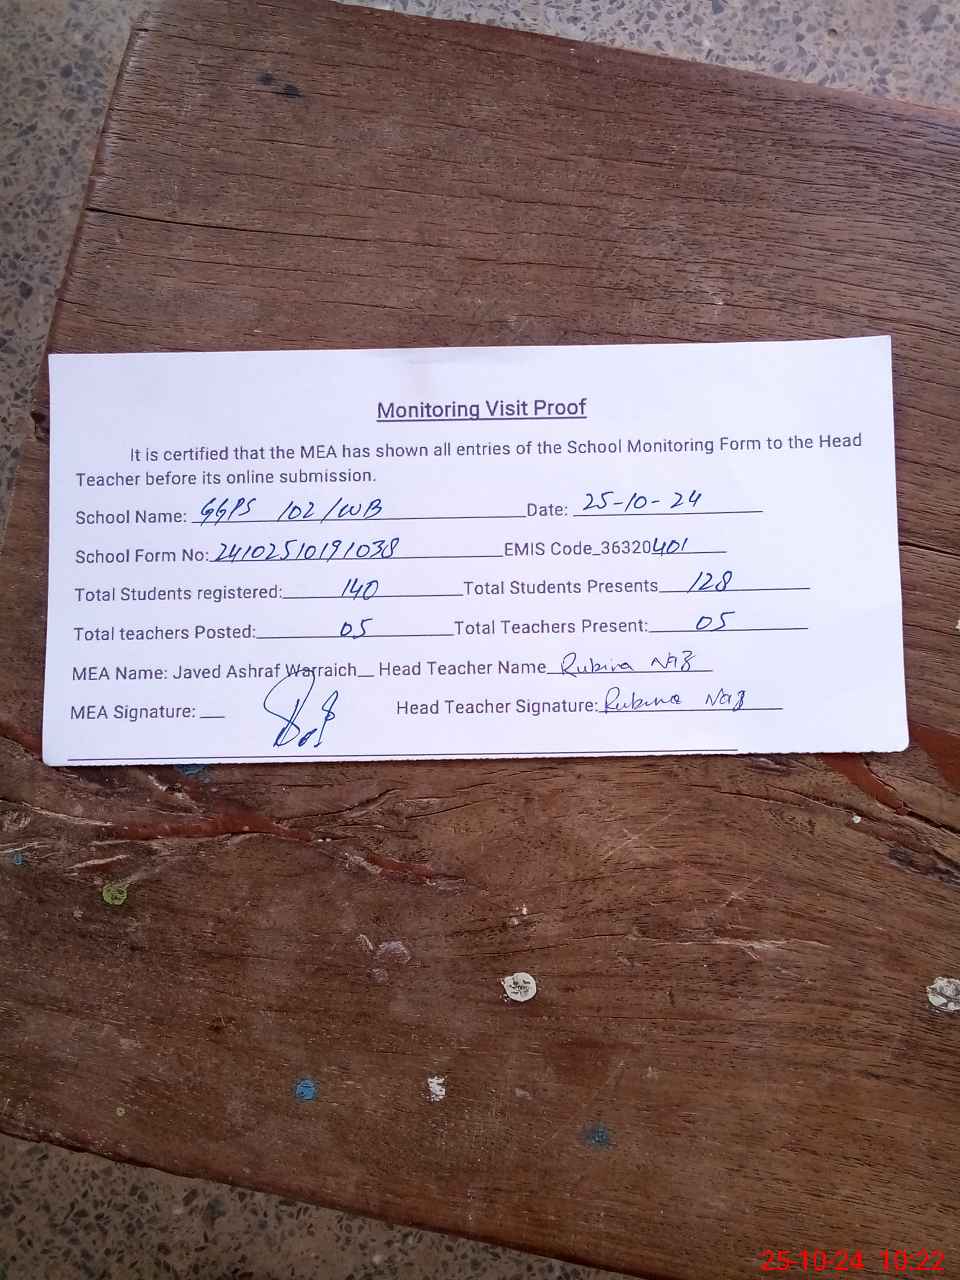 Monitoring Visit Proof
It is certified that the MEA has shown all entries of the School Monitoring Form to the Head
Teacher before its online submission.
School Name: GGPS 102/WB Date: 25-10-24
School Form No: 24102510191038 EMIS Code_36320401
Total Students registered: 140 Total Students Presents 128
Total teachers Posted: 05 Total Teachers Present: 05
MEA Name: Javed Ashraf Warraich Head Teacher Name Rubina Naz
MEA Signature: Head Teacher Signature: Rubina Naz
25-10-24 10:22